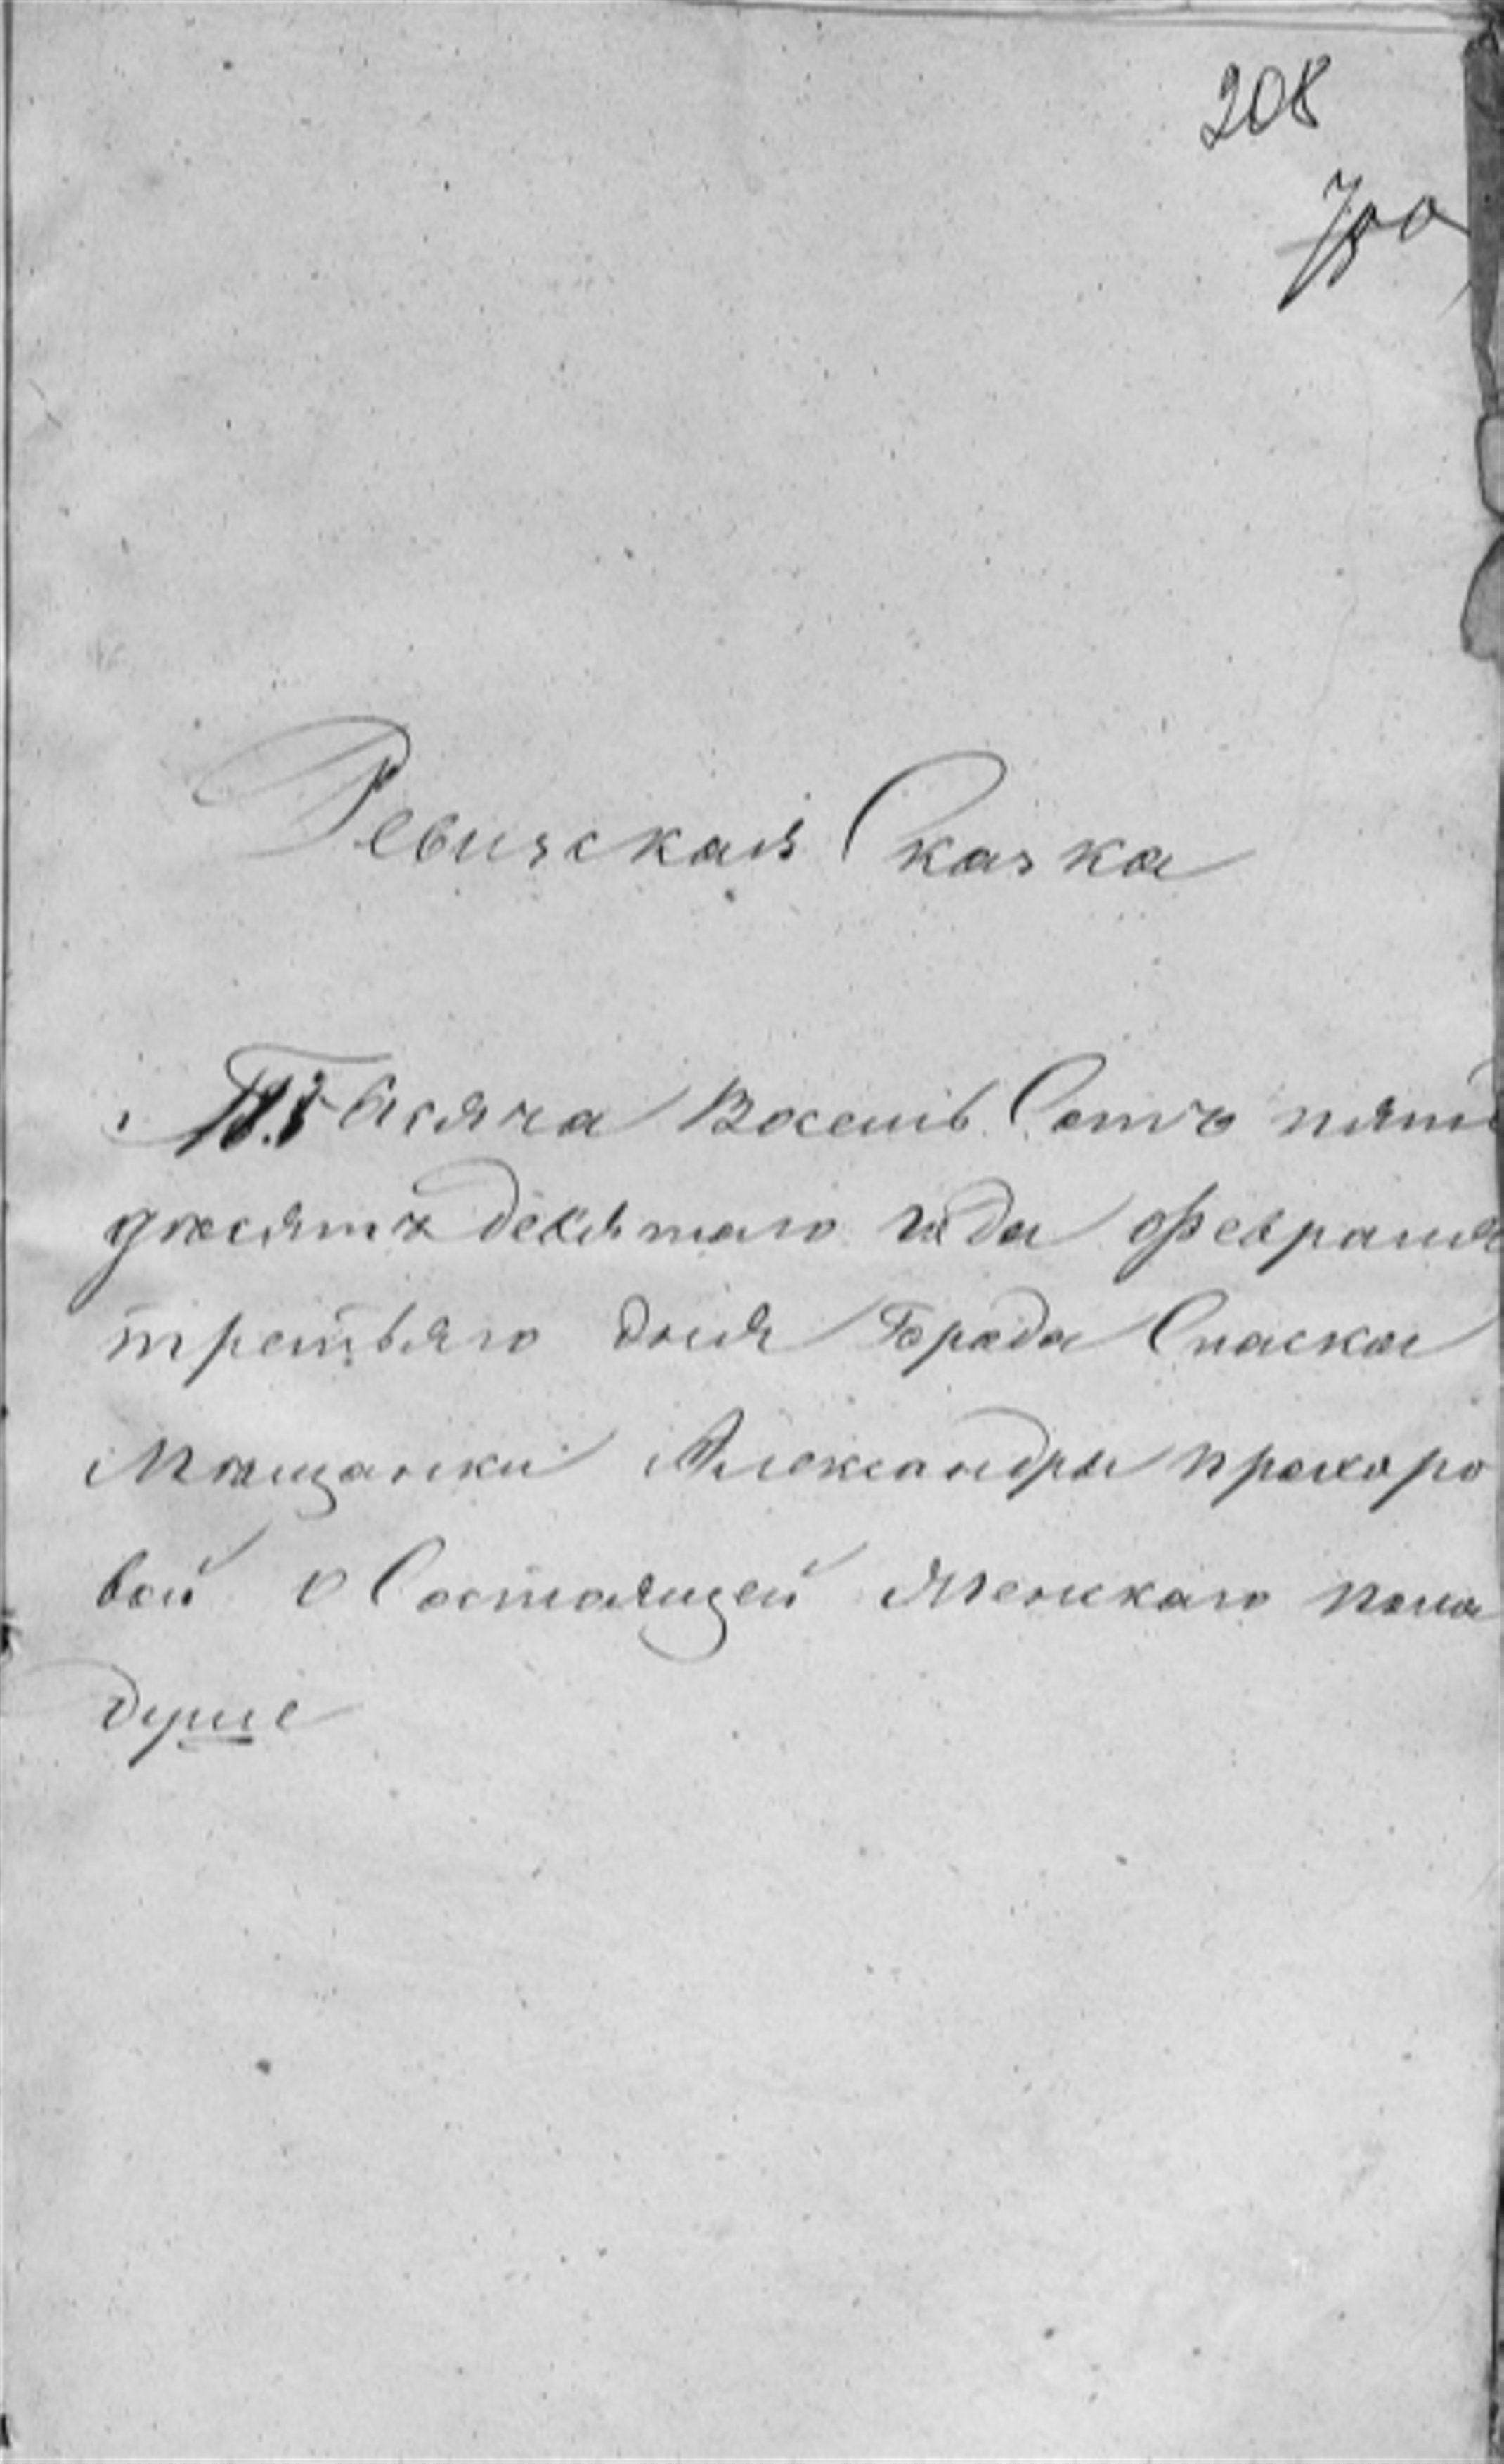 208
700
Ревизская Сказка
Тысяча Восемь Сотъ пять
десятъ девятаго года Февраля
третьяго дня Града Спаска
Мѣщанки Александры Прохоро
вой о Состоящей Женскаго пола
душе